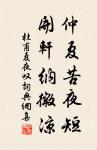 仲夏苦夜短
開軒納微涼
杜甫夏夜叹詞典網集